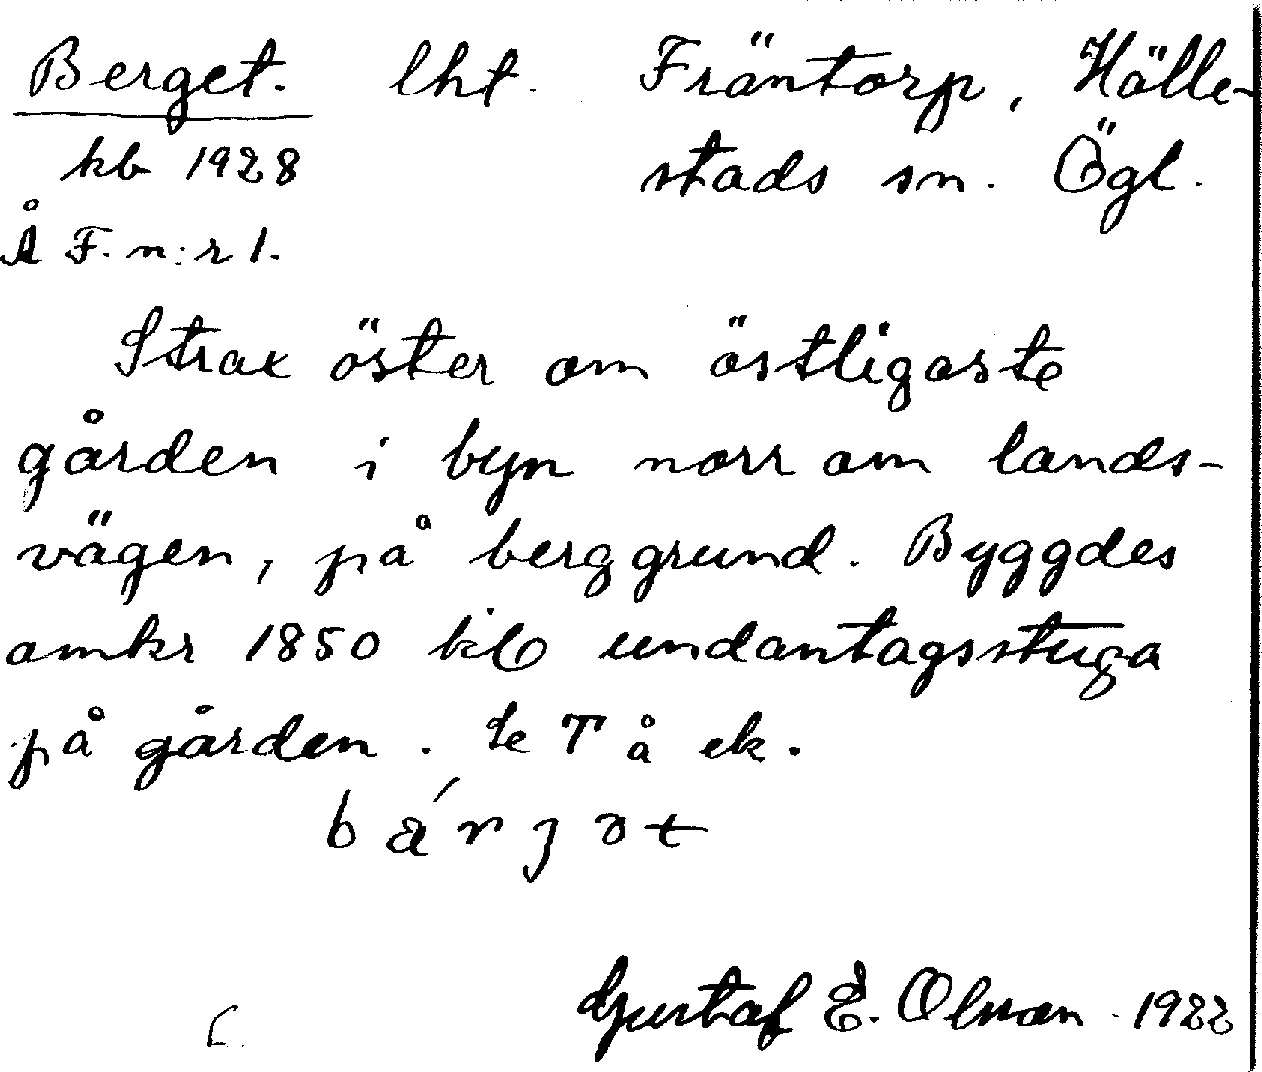 Berget. lht. Fräntorp, Hälle-
kb 1928 stads sn. Ögl.
Å F. n:r 1.
Strax öster om östligaste
gården i byn norr om lands-
vägen, på berggrund. Byggdes
omkr 1850 till undantagsstuga
på gården. Se T å ek.
Gustaf E. Olsson 1922